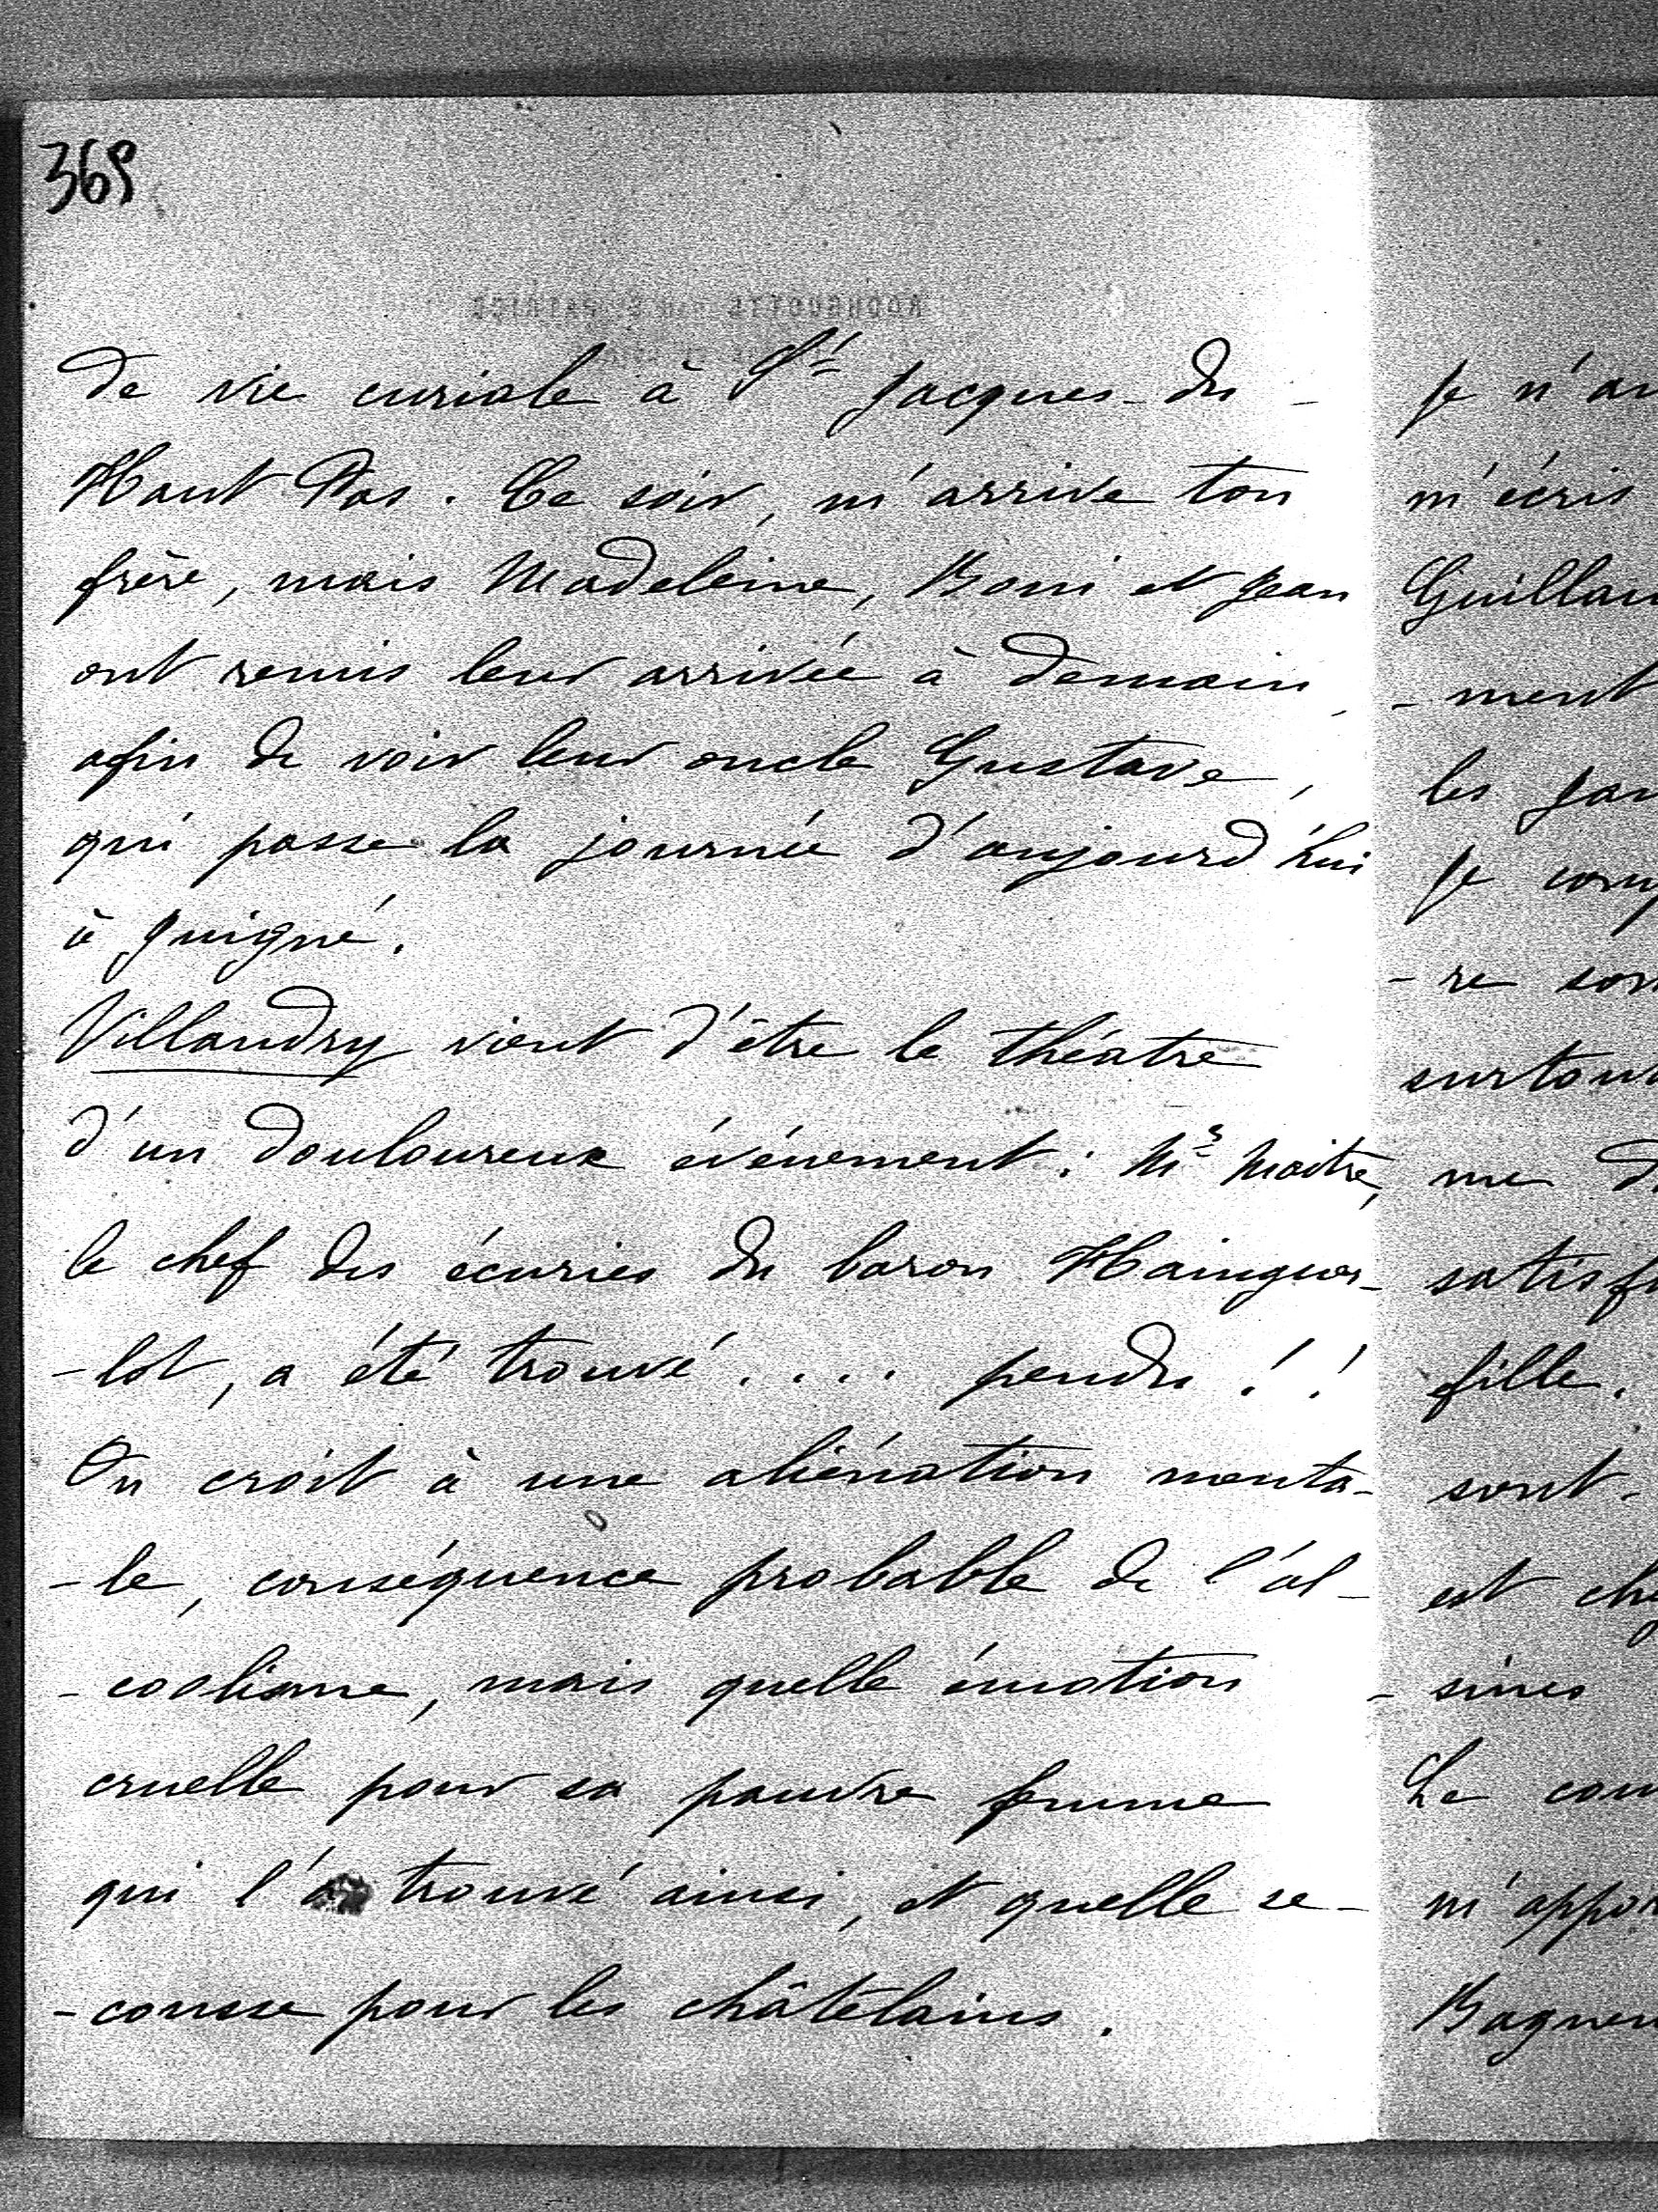 369
de vie curiale à St Jacques-du-
Haut Pas. Ce soir, m'arrive ton
frère, mais Madeleine, Boni et Jean
ont remis leur arrivée à demain,
afin de voir leur oncle Gustave,
qui passe la journée d'aujourd'hui
à Juigné.
Villandry vient d'être le théatre
d'un douloureux événement: Mr Maitre,
le chef des écuries du baron Hainguer-
-lot, a été trouvé.... pendu!!
On croit à une aliénation menta-
-le, conséquence probable de l'al-
-coolisme, mais quelle émotion
cruelle pour sa pauvre femme
qui l'a trouvé ainsi, et quelle se-
-cousse pour les châtelains.
Je n'a
m'écris
Guillau
-ment
les
Je
-re
surtout
me
satisf
fille.
sont-
est
-sines
Le
m'appor